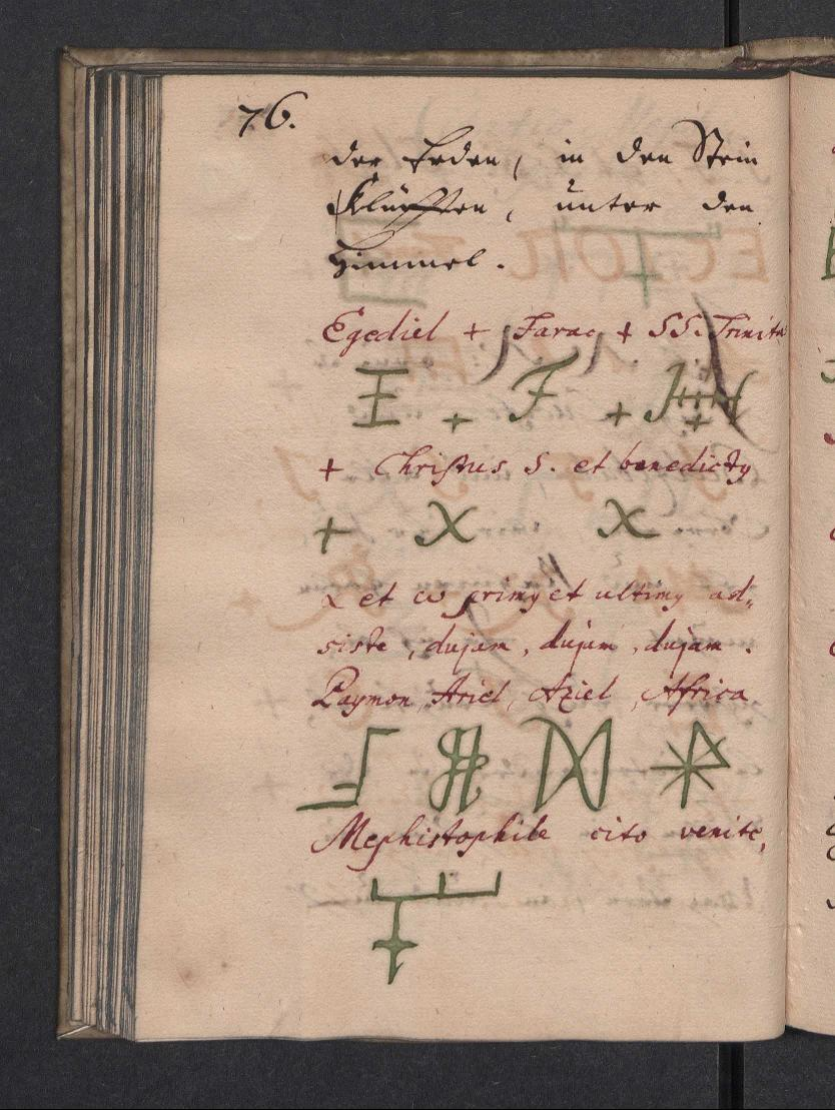 76.
der Erden, in den Stein
Klüfften, unter den
Himmel.
Egediel + Farac + SS. Trinita
+ +
+ Christus S. et benedicty
+ X X
α et ω primy et ultimy ad„
siste, dujam, dujam, dujam.
Paymon, Ariel, Aziel, Africa
Mephistophile cito venite,